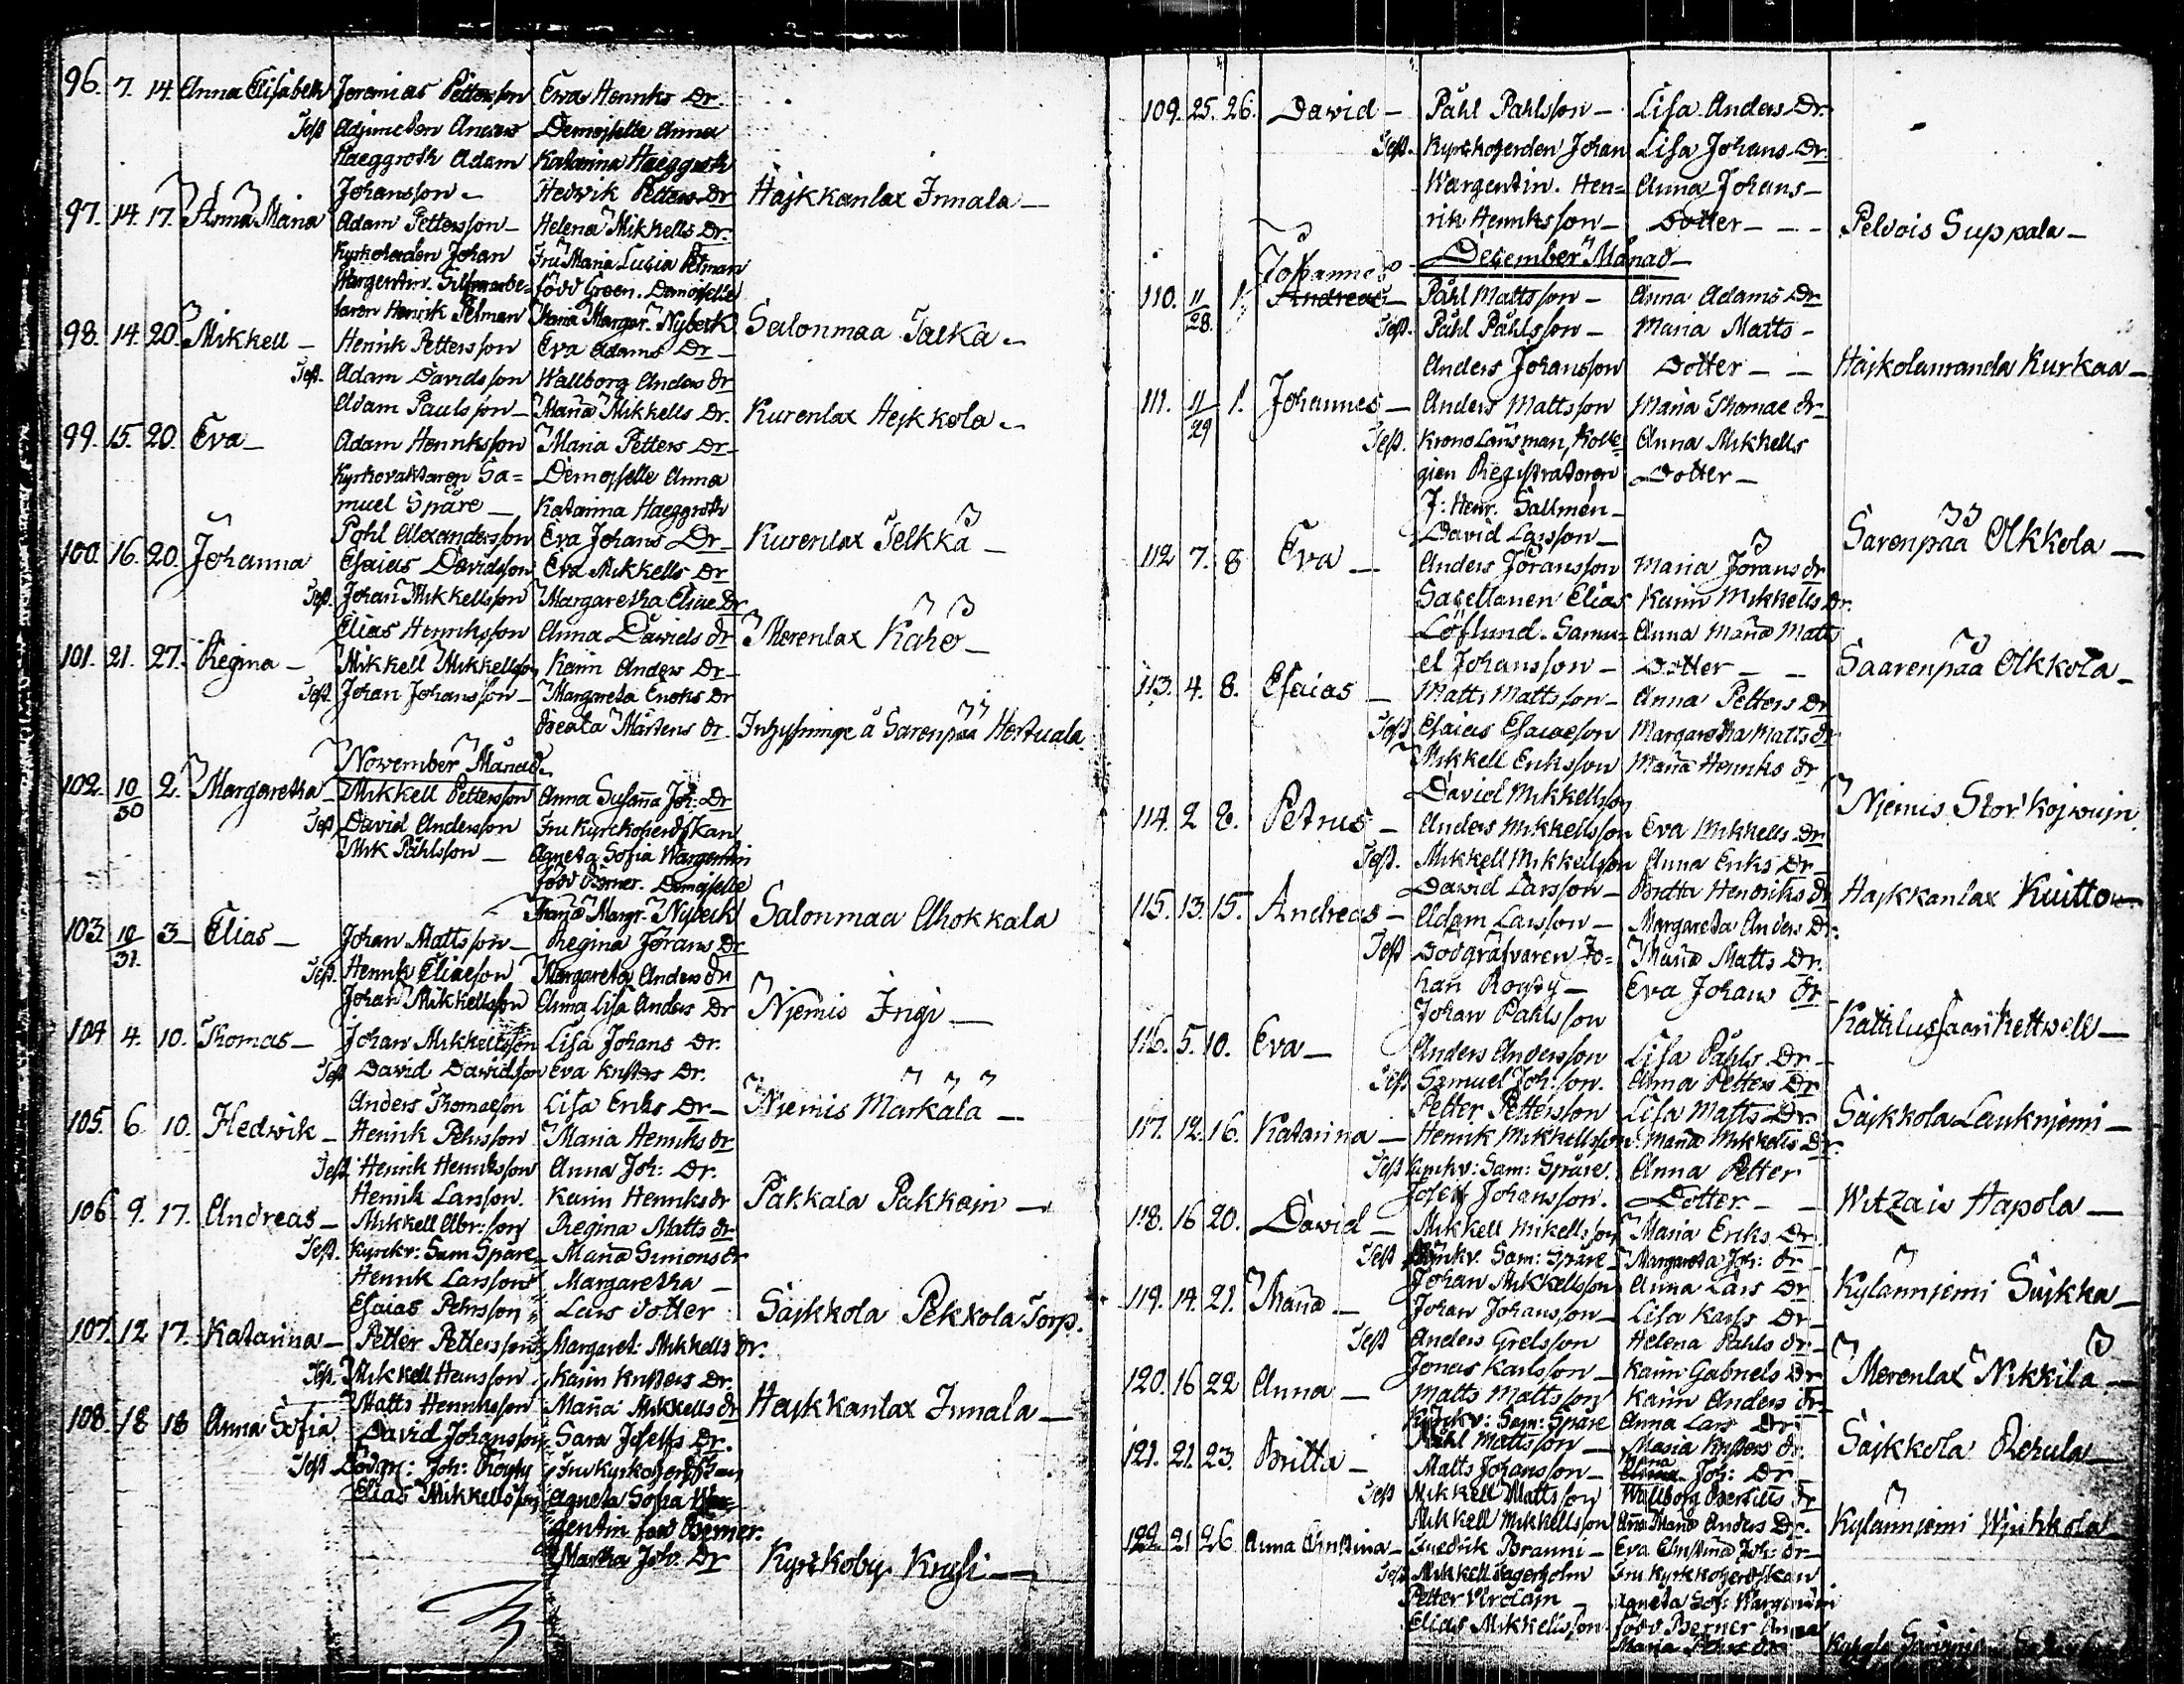 96. 7. 14. Anna Elisabeth Jeremias Pettersson Ewa Henriks Dr.
Test Adjuncten Anders Demoiselle Anna
Haeggroth Adam Katarina Haeggroth
Johansson - Hedvik Petters Dr Hajkkanlax Innala -
97. 14. 17. Anna Maria Adam Pettersson - Helena Mikkells Dr.
Kyrkoherden Johan Fru Maria Lucia Pelman
Wargentin. född Green. Demoiselle
Henrik Pelman Maria Margar. Nybeck Salonmaa Talka -
98. 14. 20. Mikkell - Henrik Pettersson Eva Adams Dr -
Test. Adam Davidsson Wallborg Anders dr
Adam Paulsson - Maria Mikkells Dr. Kurenlax Hejkkola -
99. 15. 20. Eva - Adam Henriksson Maria Petters Dr -
Kyrkovaktaren Sa= Demoiselle Anna
muel Spåre - Katarina Haeggroth
Pohl Alexandersson Eva Johans Dr - Kurenlax Telkkä -
100. 16. 20. Johanna Esaias Davidsson Eva Mikkells Dr
Test. Johan Mikkellsson Margaretha Eliae Dr
Elias Henriksson Anna Davids dr Merenlax Kähö -
101. 21. 27. Regina - Mikkell Mikkellsson Karin Anders Dr -
Test. Johan Johansson - Margareta Enoks Dr
Beata Mårtens dr Inhysninge å Sarenpää Hertuala
November Månad.
102. 10/30 2. Margaretha - Mikkell Pettersson Anna Susanna Joh: Dr
Test David Andersson Fru Kyrckoherdskan
Mik Påhlsson - Agneta Sofia Wargentin
född Berner. Demoiselle
Maria Margr. Nybeck Salonmaa Ahokkala
103. 10/31. 3 Elias - Johan Mattsson - Regina Jörans Dr
Test. Henrik Eliaeson Margareta Anders dr
Johan Mikkellsson Anna Lisa Anders Dr Njemis Ingi -
104 4. 10. Thomas - Johan Mikkellsson Lisa Johans Dr.
Test David Davidson Eva Kristers Dr.
Anders Thomaeson Lisa Eriks Dr - Njemis Markälä -
105. 6. 10. Hedwik - Henrik Pehrsson Maria Henriks dr
Test Henrik Henriksson Anna Joh: Dr.
Henrik Larsson. Karin Henriks dr Pakkala Pakkain -
106. 9. 17. Andreas - Mikkell Abr:son Regina Matts dr
Test. Kyrckv: Sam Spåre - Maria Simons dr
Henrik Larsson Margaretha -
Esaias Pehrsson Lars dotter Säjkkola Pekkola Torp.
107. 12 17. Katarina - Petter Pettersson Margaret: Mikkells Dr.
Test. Mikkell Hansson Karin Kristers Dr.
Matts Henriksson Maria Mikkells dr Hajkkanlax Innala -
108. 18 18 Anna Sofia David Johansson Sara Josefs Dr.
Test Dödgr: Joh: Fru Kyrkoherdskan
Elias Mikkellsson Agneta Sofia War=
gentin född Berner.
Martha Joh. Dr Kyrkoby Knysi -
109. 25. 26. David - Påhl Pahlsson - Lisa Anders Dr.
Test. Kyrckoherden Johan Lisa Johans Dr.
Wargentin. Hen= Anna Johans -
rik Henriksson - Dotter - - - Pelvois Suppala -
December Månad -
Johannes
110. 11/28. 1. Andreas - Påhl Mattsson - Anna Adams Dr
Test. Påhl Påhlsson - Maria Matts -
Anders Johansson Dotter - - Hajkolanranda Kurkaa -
111. 11/29 1. Johannes - Anders Mattsson Maria Thomae dr
Test. Krono Länsman, Kolle Anna Mikkells
gien Registratoren Dotter -
J: Henr. Sallmén -
David Larsson - Sarenpää Olkkola -
112 7. 8 Eva - Anders Göransson Maria Jörans dr
Sacellanen Elias Karin Mikkells Dr.
Löflund. Samu= Anna Maria Matts
el Johansson - Dotter - - Saarenpää Olkkola -
113. 4. 8. Esaias - Matts Mattsson - Anna Petters Dr
Test Esaias Esaiaeson Margaretha Matts dr
Mikkell Eriksson Maria Henriks dr
David Mikkellsson Njemis Stor Kojwuin
114. 2 8. Petrus - Anders Mikkellsson Eva Mikkells Dr
Test. Mikkell Mikkellsson Anna Eriks Dr -
David Larsson - Britta Hendriks dr Hajkkanlax Kuitto -
115. 13. 15. Andreas - Adam Larsson - Margareta Anders Dr.
Test Dödgräfvaren Jo= Maria Matts Dr.
han - Eva Johans dr
Johan Pahlsson Kattilussaari Kettwell -
116. 5. 10. Eva - Anders Andersson Lisa Påhls Dr -
Test Samuel Joh:son. Anna Petters Dr
Petter Pettersson Lisa Matts Dr. Säjkkola Lauknjemi -
117. 12. 16. Katarina - Henrik Mikkellsson Maria Mikkells Dr.
Test Kyrckv: Sam: Spåre. Anna Petter
Josef Johansson. Dotter. - - Witzais Hapola -
118. 16 20. David - Mikkell Mikellsson Maria Eriks Dr.
Test Kyrckv. Sam: Spåre - Margareta Joh: dr -
Johan Mikkellsson Anna Lars Dr Kylännjemi Sujkka -
119. 14. 21. Maria - Johan Johansson - Lisa Karls Dr -
Test Anders Grelsson Helena Påhls Dr -
Jonas Karlsson - Karin Gabriels Dr Merenlax Nikkilä -
120. 16 22 Anna - Matts Mattsson Karin Anders dr -
Kyrckv: Sam: Spåre Anna Lars Dr -
Påhl Mattsson - Maria Kristers dr. Säjkkola Rehula -
121. 21. 23. Britta - Matts Johansson - Maria Joh: Dr -
Test Mikkell Mattsson Wallborg Bertills dr
Mikkell Mikkellsson Anna Maria Anders Dr. Kylännjemi Wjuhkola
122. 21 26 Anna Christina - Fredrik Branni - Eva Christina Joh: dr -
Test Mikkell Lagerholm Fru Kyrkkoherdskan
Petter - Agneta Sof: Wargentin
Elias Mikkellsson född Berner Anna
Maria